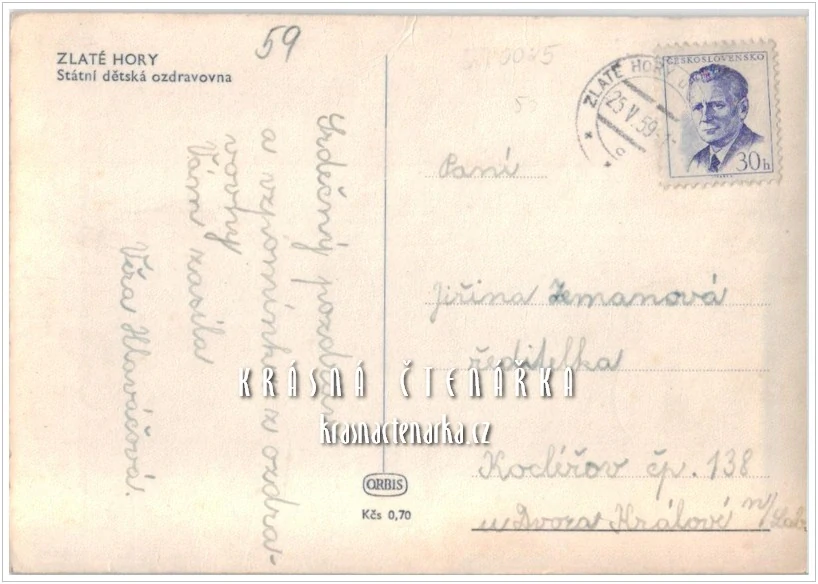 ZLATÉ HORY
Státní dětská ozdravovna
59
Srdečný pozdrav
a vzpomínku z ozdra-
vovny
Vám zasílá
Věra Hlaváčová.
ORBIS
Kčs 0,70
ZLATÉ HORY
25.V.59
ČESKOSLOVENSKO
30h
Paní
Jiřina Zemanová
ředitelka
Kocléřov čp. 138
u Dvora Králové n/Lab.
KRÁSNÁ ČTENÁŘKA
krasnactenarka.cz